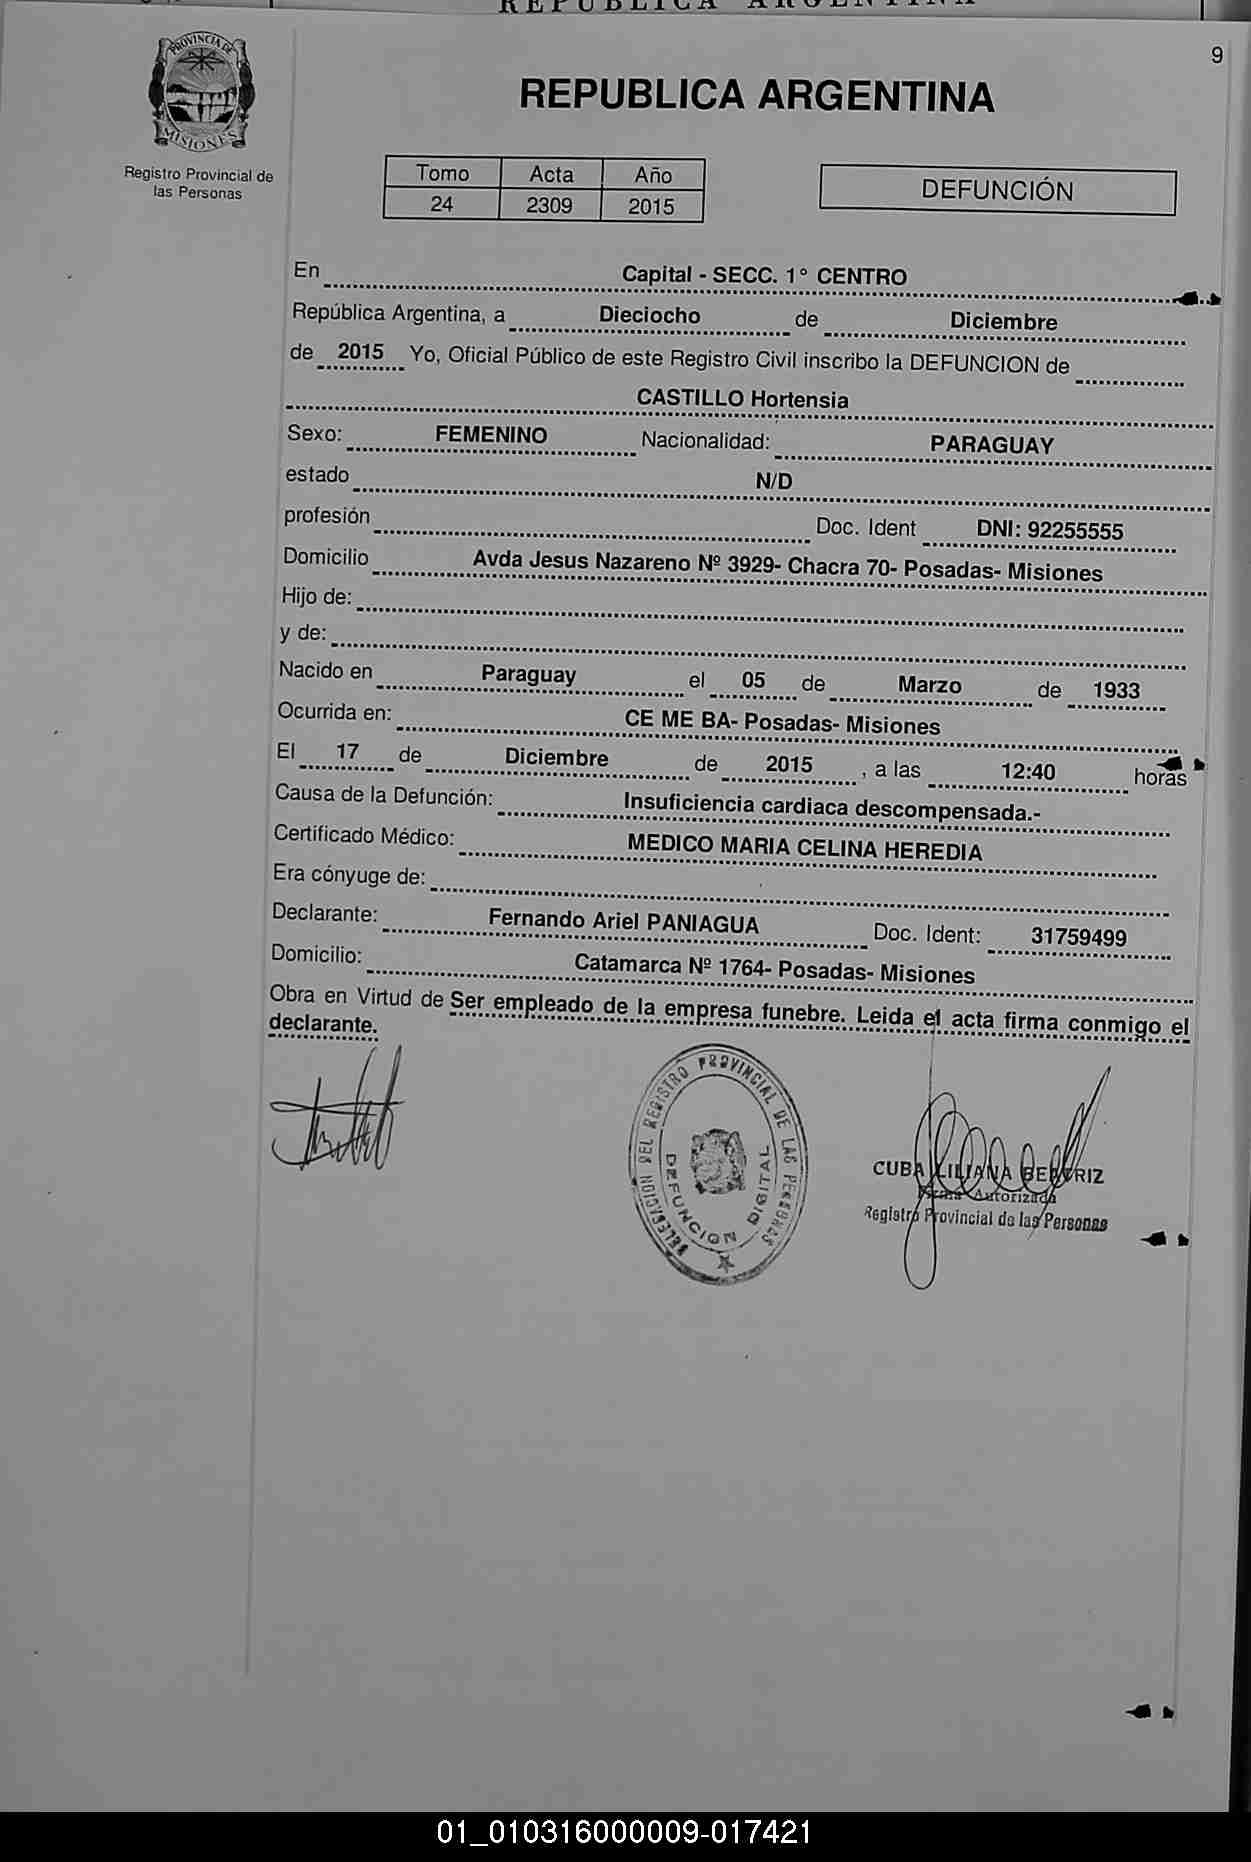 REPUBLICA ARGENTINA
9
PROVINCIA DE
MISIONES
Registro Provincial de
las Personas
REPUBLICA ARGENTINA
Tomo Acta Año
24 2309 2015
DEFUNCIÓN
En Capital - SECC. 1° CENTRO
República Argentina, a Dieciocho de Diciembre
de 2015 Yo, Oficial Público de este Registro Civil inscribo la DEFUNCION de
CASTILLO Hortensia
Sexo: FEMENINO Nacionalidad: PARAGUAY
estado N/D
profesión Doc. Ident DNI: 92255555
Domicilio Avda Jesus Nazareno Nº 3929- Chacra 70- Posadas- Misiones
Hijo de:
y de:
Nacido en Paraguay el 05 de Marzo de 1933
Ocurrida en: CE ME BA- Posadas- Misiones
El 17 de Diciembre de 2015 , a las 12:40 horas
Causa de la Defunción: Insuficiencia cardiaca descompensada.-
Certificado Médico: MEDICO MARIA CELINA HEREDIA
Era cónyuge de:
Declarante: Fernando Ariel PANIAGUA Doc. Ident: 31759499
Domicilio: Catamarca Nº 1764- Posadas- Misiones
Obra en Virtud de Ser empleado de la empresa funebre. Leida el acta firma conmigo el
declarante.
DELEGACION DEL REGISTRO PROVINCIAL DE LAS PERSONAS
DEFUNCION DIGITAL
CUBA LILIANA BEATRIZ
Firma Autorizada
Registro Provincial de las Personas
01_010316000009-017421